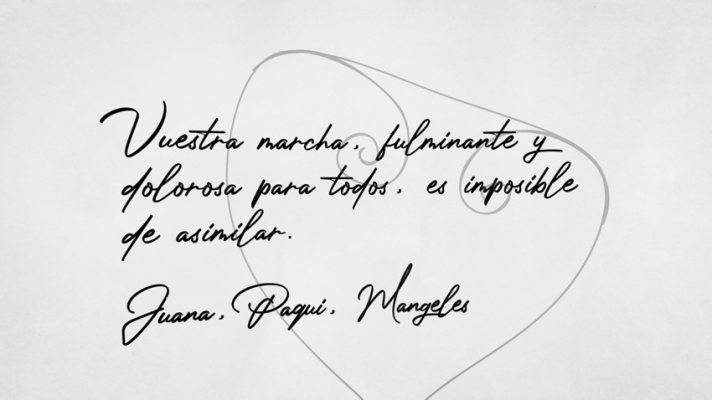 Vuestra marcha, fulminante y
dolorosa para todos, es imposible
de asimilar.
Juana, Paqui, Mangeles